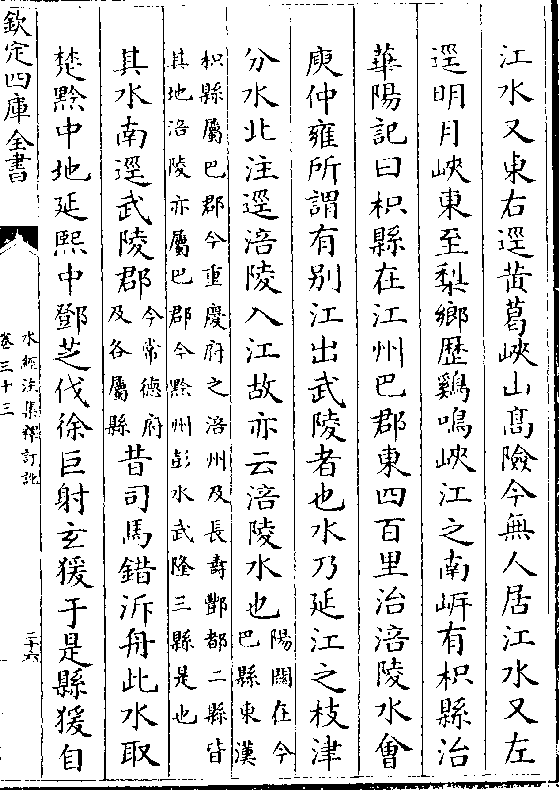 江水又東右逕黄葛峽山髙險今無人居江水又左
逕明月峽東至梨鄉歴鷄鳴峽江之南㟁有枳縣治
華陽記曰枳縣在江州巴郡東四百里治涪陵水會
庾仲雍所謂有别江出武陵者也水乃延江之枝津
分水北注逕涪陵入江故亦云涪陵水也陽關在今巴縣東漢
枳縣屬巴郡今重慶府之涪州及長壽酆都二縣皆
其地涪陵亦屬巴郡今黔州彭水武隆三縣是也
其水南逕武陵郡今常德府及各屬縣昔司馬錯泝舟此水取
楚黔中地延熙中鄧芝伐徐巨射玄猨于是縣猨自
欽定四庫全書
水經注集釋訂訛
卷三十三
三十六